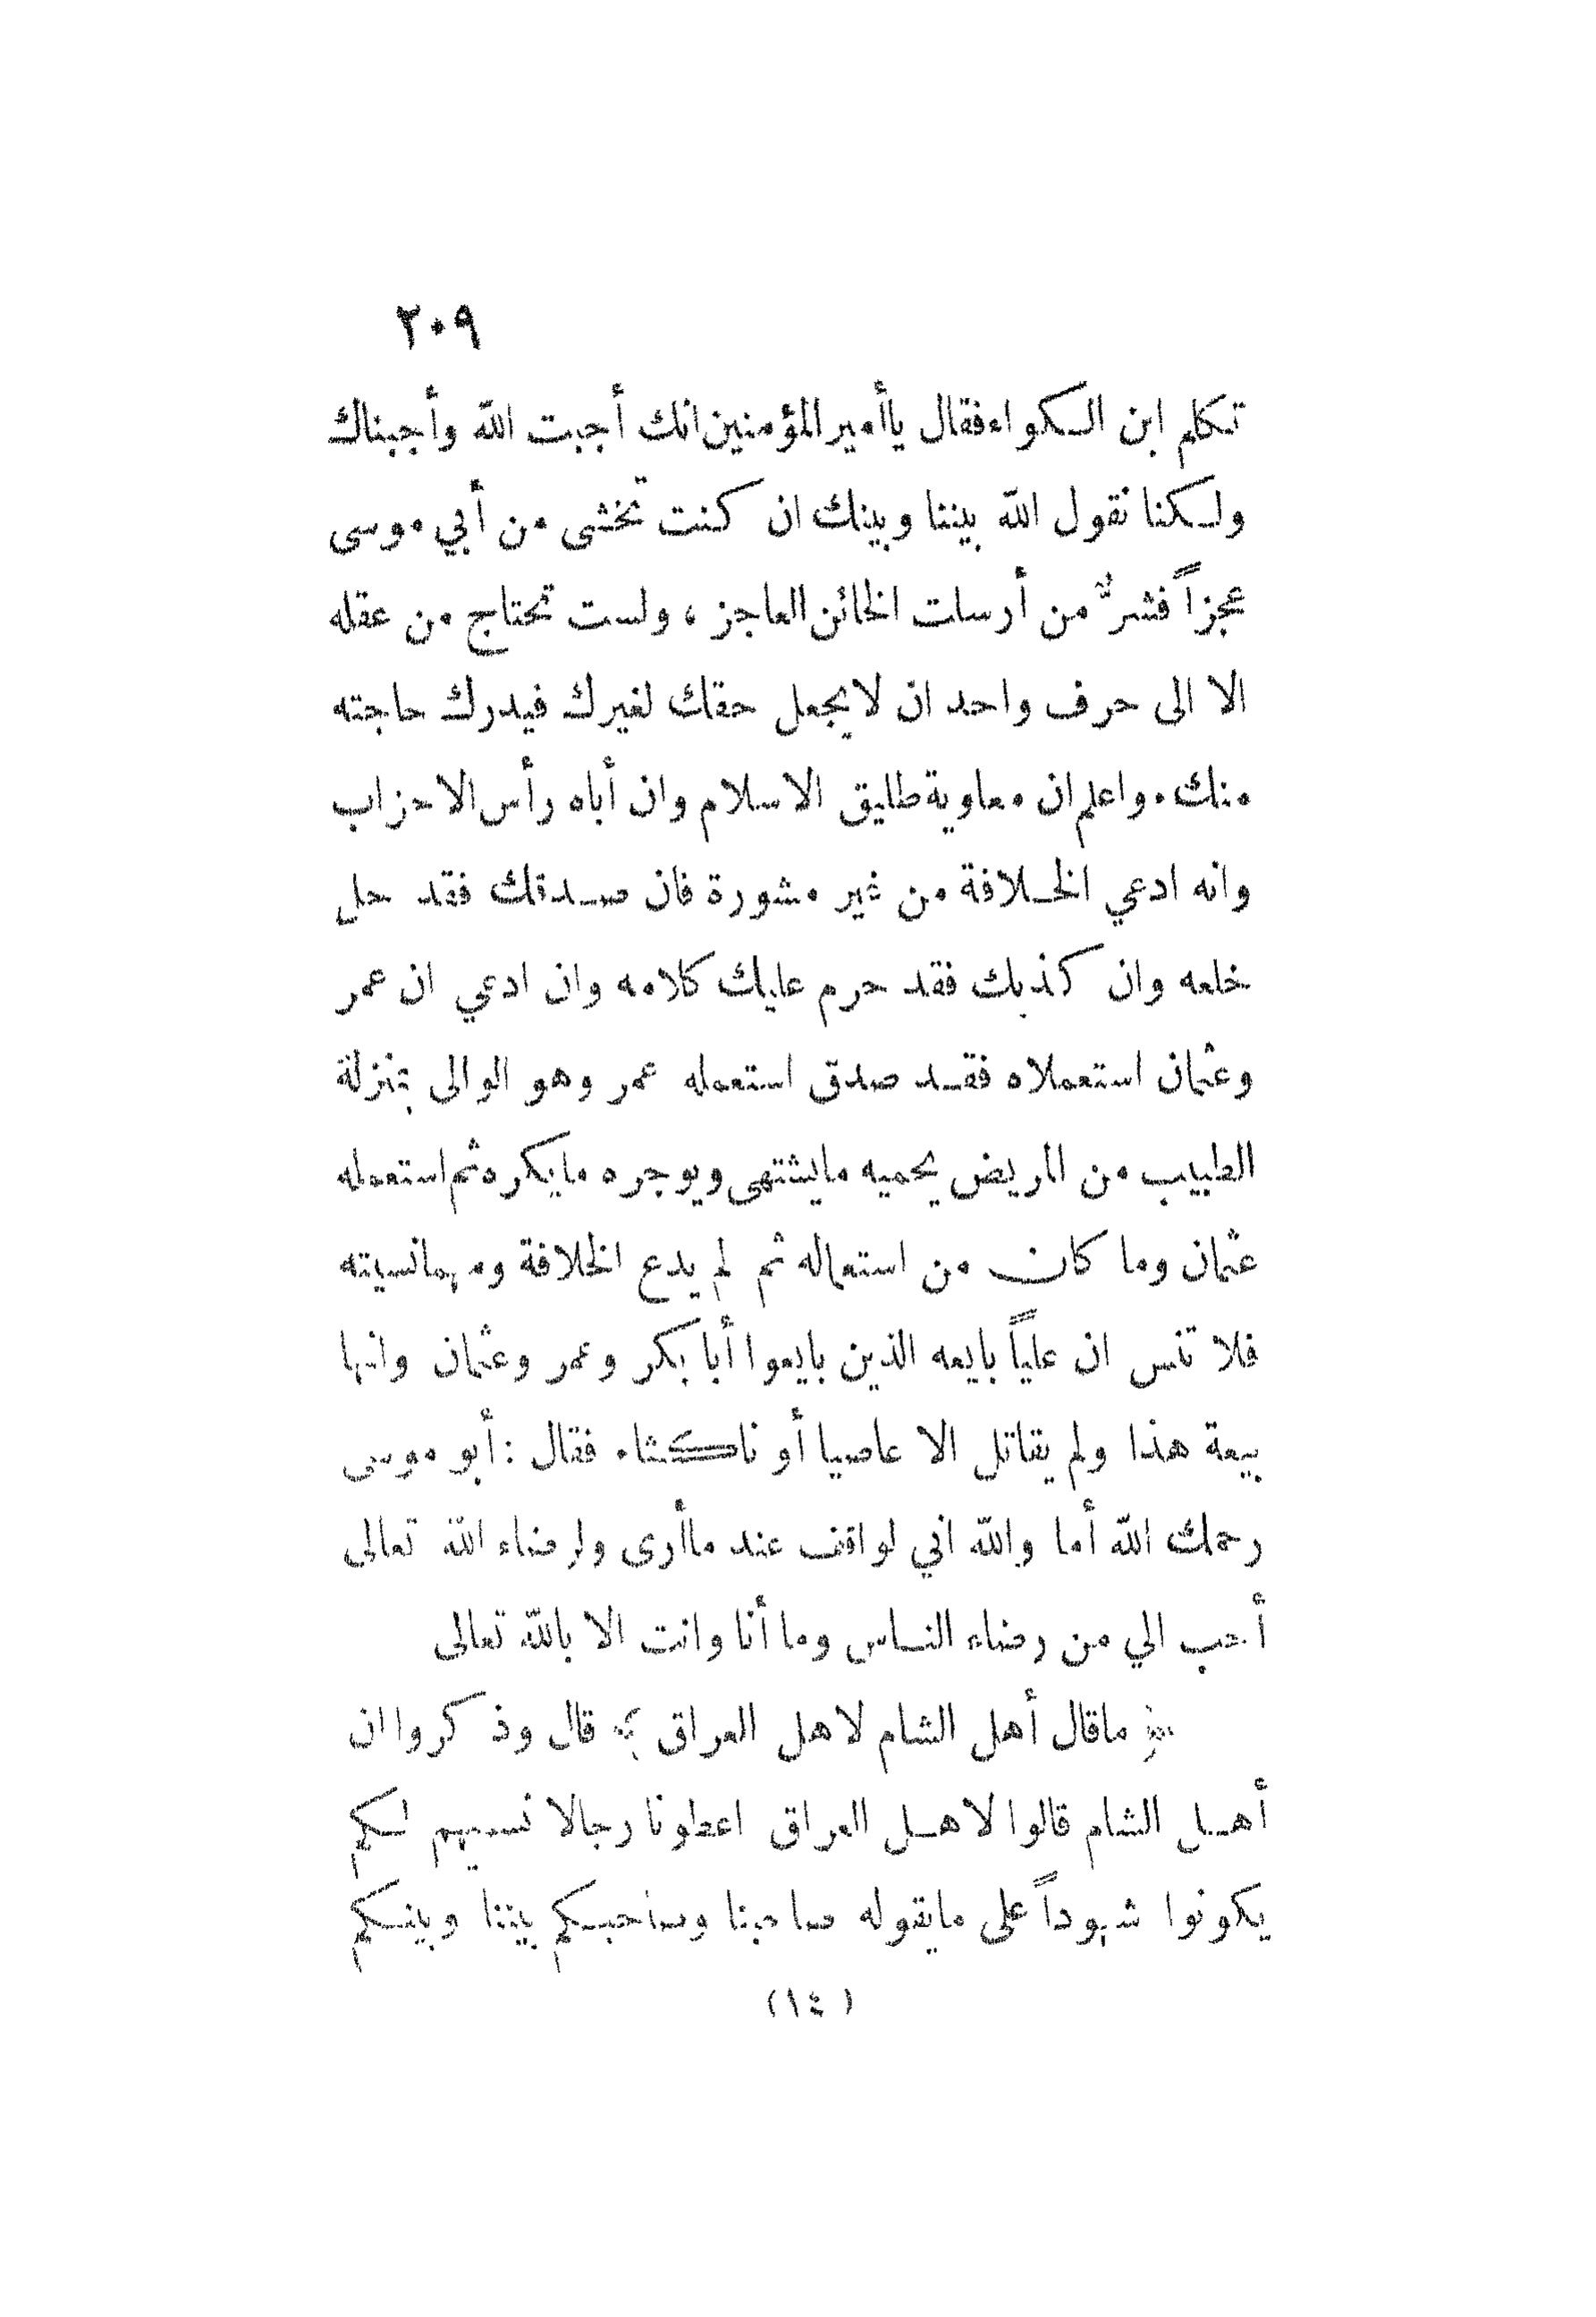 ٢٠٩
تكلم ابن الكواء فقال ياأمير المؤمنين انك أجبت الله وأجبناك
ولكنا نقول الله بيننا وبينك ان كنت تخشى من أبي موسى
عجزاً فشرٌّ من أرسلت الخائن العاجز ، ولست تحتاج من عقله
الا الى حرف واحد ان لا يجعل حقك لغيرك فيدرك حاجته
منك . واعلم ان معاوية طليق الاسلام وان أباه رأس الاحزاب
وانه ادعي الخلافة من غير مشورة فان صدقك فقد حل
خلعه وان كذبك فقد حرم عليك كلامه وان ادعي ان عمر
وعثمان استعملاه فقد صدق استعمله عمر وهو الوالى بمنزلة
الطبيب من المريض يحميه مايشتهى ويوجره مايكره ثم استعمله
عثمان وما كان من استعماله ثم لم يدع الخلافة ومهما نسيته
فلا تنس ان علياً بايعه الذين بايعوا أبا بكر وعمر وعثمان وانها
بيعة هذا ولم يقاتل الا عاصيا أو ناكثاً . فقال : أبو موسى
رحمك الله أما والله اني لواقف عند ماأرى ولرضاء الله تعالى
أحب الي من رضاء الناس وما أنا وانت الا بالله تعالى
﴿ ماقال أهل الشام لاهل العراق ﴾ قال وذكروا ان
أهل الشام قالوا لاهل العراق اعطونا رجالا نسميهم لكم
يكونوا شهوداً على مايقوله صاحبنا وصاحبكم بيننا وبينكم
(١٤)